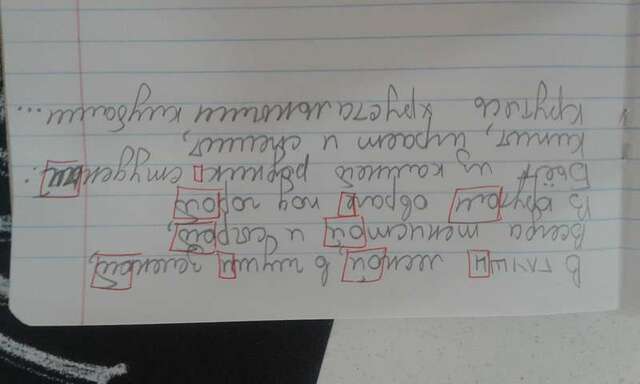 В глуши лесной, в глуши зеленой,
Всегда тенистой и сырой,
В крутом овраге под горой
Бьёт из камней родник студеный:
Кипит, играет и спешит,
Крутясь хрустальными клубами...